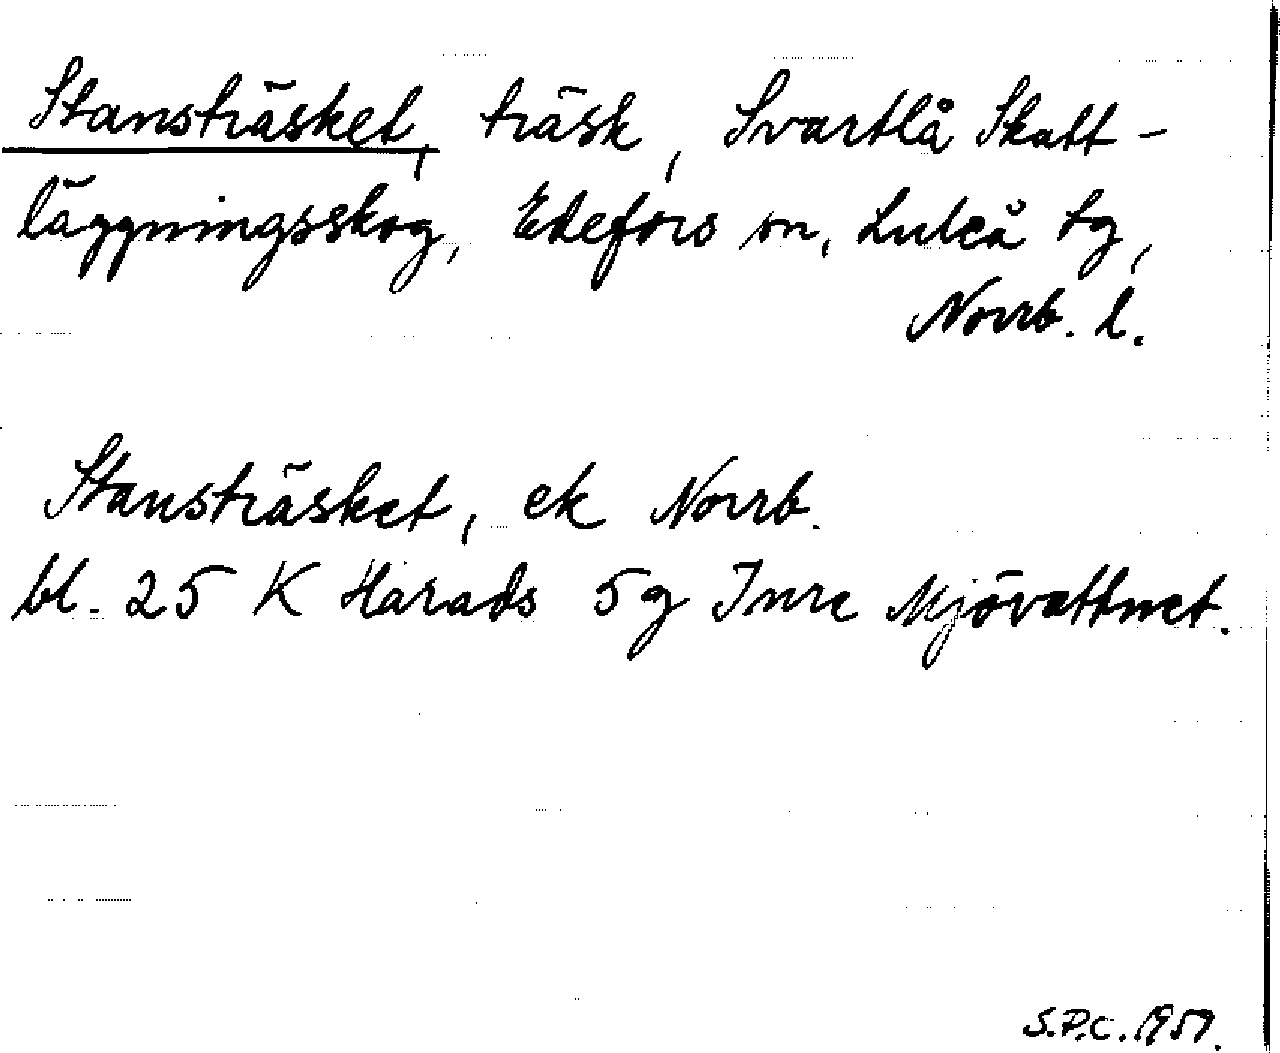 Stansträsket, träsk, Svartlå Skatt-
läggningsskog, Edefors sn, Luleå tg,
Norrb. l.
Stansträsket, ek Norrb.
bl. 25 K Harads 5g Inre Mjövattnet.
S.P.C. 1959.